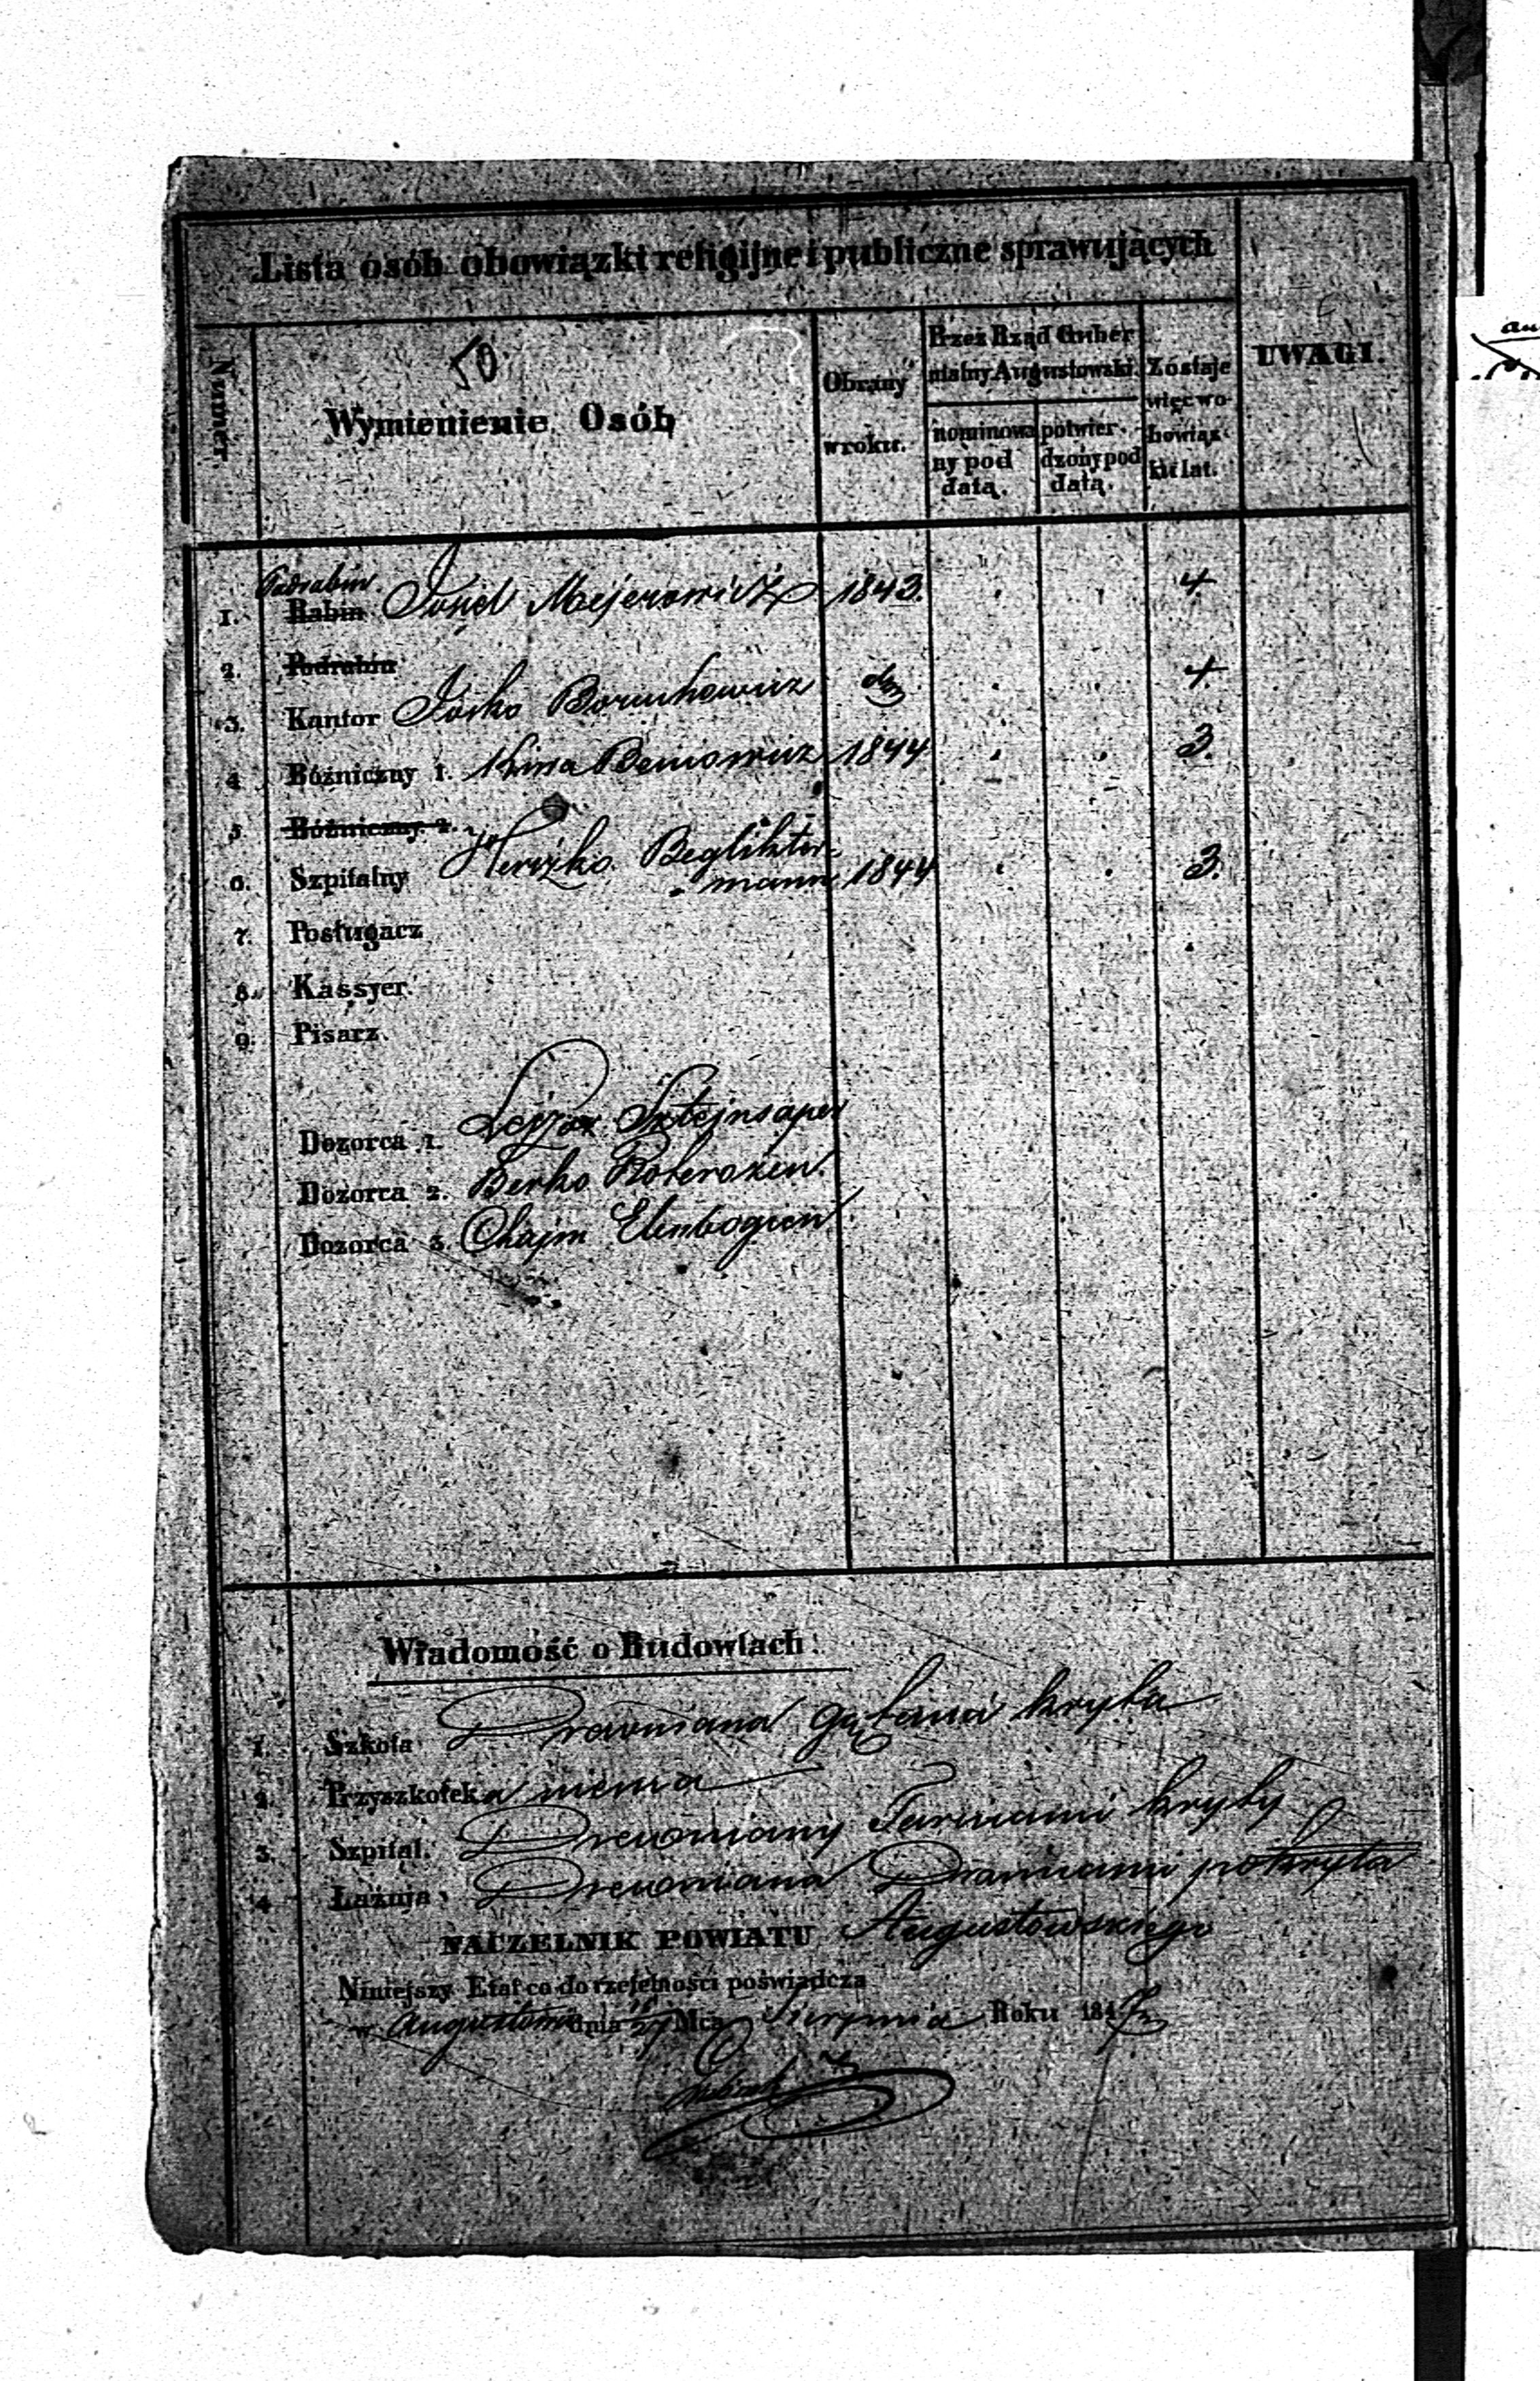 Lista osób obowiązki religijne i publiczne sprawujących
Numer.
50
Wymienienie Osób
Obrany w roku.
Przez Rząd Gubernialny Augustowski.
nominowany pod datą.
potwierdzony pod datą.
Zostaje więc w obowiązki lat.
UWAGI.
Podrabin
1. Rabin Josiel Mejerowicz 1843. 4
2. Podrabin
3. Kantor Josko Boruchowicz 4.
4 Bóżniczny 1. Beniowicz 1844 3.
5 Bóżniczny 2.
6. Szpitalny Herszko Beglikter-
mann 1844 3.
7. Posługacz
8. Kassyer.
9. Pisarz.
Dozorca 1. Lejzor Sztejnsaper
Dozorca 2. Berko Roterozen
Dozorca 3. Chajm Elenbogien
Wiadomość o Budowlach:
1. Szkoła Drewniana gątami kryta
2. Przyszkołek niema
3. Szpital. Drewniany Tarciami kryty
4 Łaźnia Drewniana Dranicami pokryta
NACZELNIK POWIATU Augustowskiego
Niniejszy Etat co do rzetelności poświadcza
w Augustowie dnia 15/27 Mca Sierpnia Roku 1847